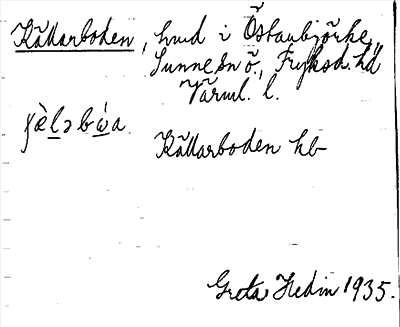 Källarboden, hmd i Östanbjörke,
Sunne sn ö., Fryksd. hd
Värml. l.
Källarboden hb
Greta Hedin 1935.